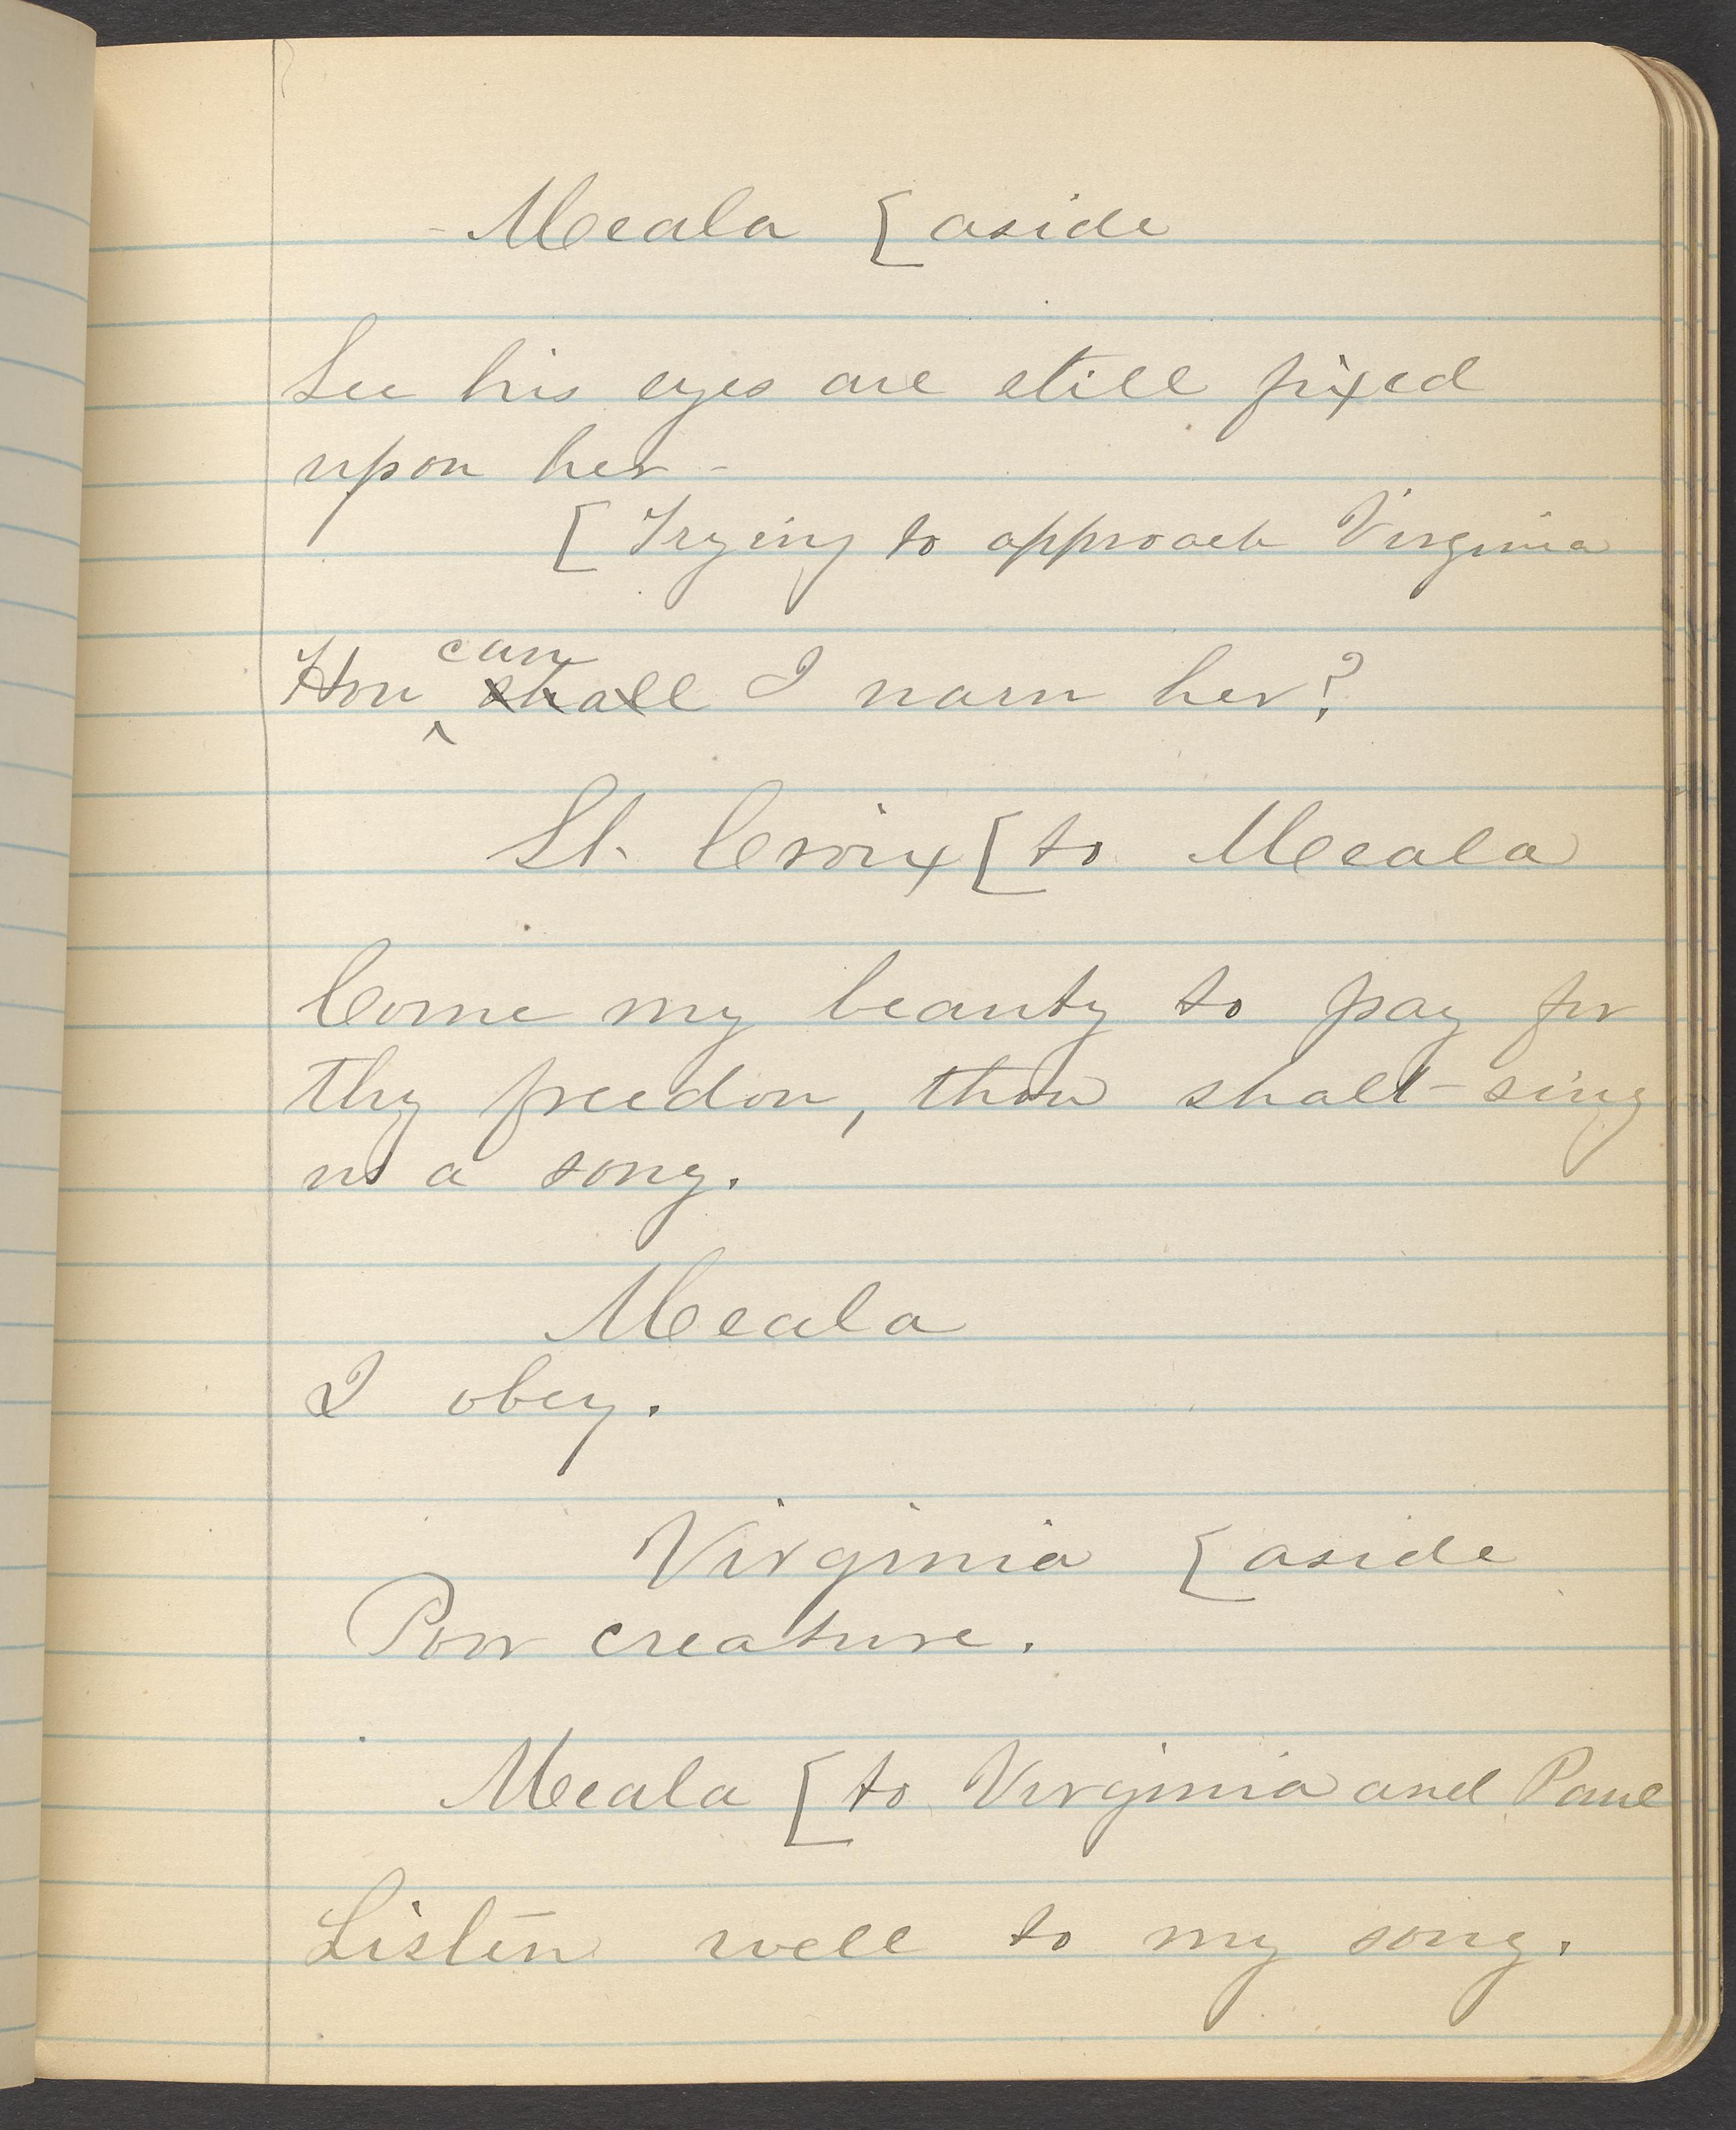 - Meala [aside
See his eyes are still fixed
upon her -
[Trying to approach Virginia
How can shall I warn her?
St. Croix [to Meala
Come my beauty to pay for
thy freedom, thou shalt sing
us a song.
Meala
I obey.
Virginia [aside
Poor creature.
Meala [to Virginia and Paul
Listen well to my song.